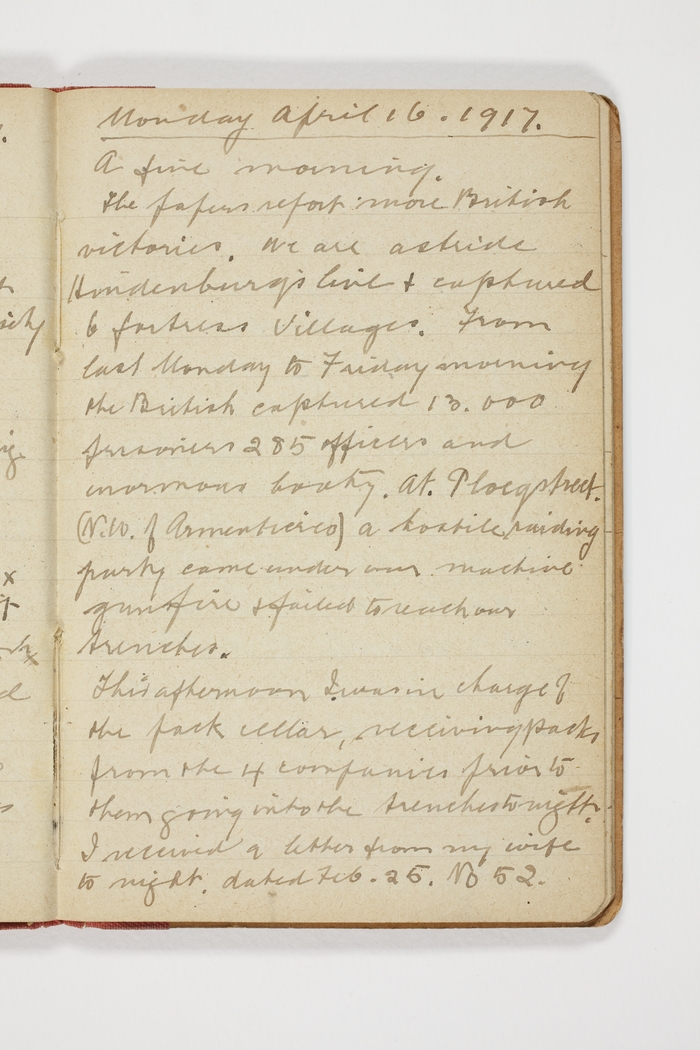 Monday April 16. 1917.
A fine morning.
The papers report more British
victories. We are astride
Hindenburg's line & captured
6 fortress Villages. From
last Monday to Friday morning
the British captured 13.000
prisoners 285 officers and
enormous booty. At Ploegstreet.
(N.W. of Armentieres) a hostile raiding
party came under our machine
gun fire & failed to reach our
trenches.
This afternoon I was in charge of
the pack cellar, receiving packs
from the 4 companies prior to
them going into the trenches to night.
I received a letter from my wife
to night. dated Feb. 25. No 52.